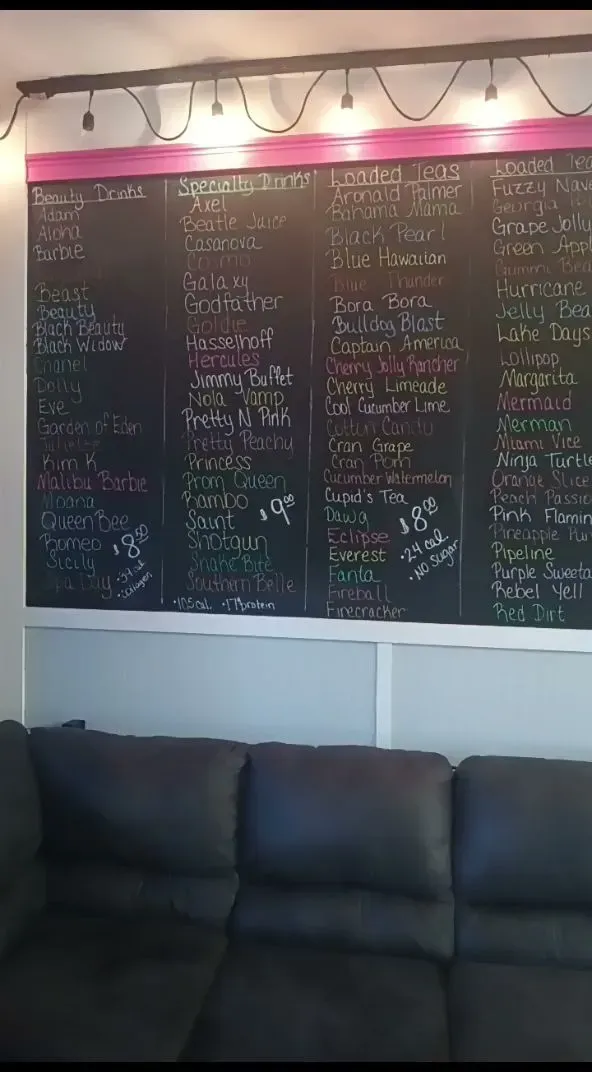 Beauty Drinks
Adam
Aloha
Barbie
Beast
Beauty
Black Beauty
Black Widow
Chanel
Dolly
Eve
Garden of Eden
Juliette
Kim K
Malibu Barbie
Moana
Queen Bee
Romeo
Sicily
Spa Day
$8.50
•34 cal
•collagen
Specialty Drinks
Axel
Beatle Juice
Casanova
Cosmo
Galaxy
Godfather
Goldie
Hasselhoff
Hercules
Jimmy Buffet
Nola Vamp
Pretty N Pink
Pretty Peachy
Princess
Prom Queen
Rambo
Saint
Shotgun
Snake Bite
Southern Belle
$9.00
•105cal. •17g protein
Loaded Teas
Aronald Palmer
Bahama Mama
Black Pearl
Blue Hawaiian
Blue Thunder
Bora Bora
Bulldog Blast
Captain America
Cherry Jolly Rancher
Cherry Limeade
Cool Cucumber Lime
Cotton Candy
Cran Grape
Cran Pom
Cucumber Watermelon
Cupid's Tea
Dawg
Eclipse
Everest
Fanta
Fireball
Firecracker
$8.00
•24 cal
•NO sugar
Loaded Tea
Fuzzy Nave
Georgia
Grape Jolly
Green Appl
Gummi Bea
Hurricane
Jelly Bea
Lake Days
Lollipop
Margarita
Mermaid
Merman
Miami Vice
Ninja Turtle
Orange Slice
Peach Passio
Pink Flamin
Pineapple
Pipeline
Purple Sweeta
Rebel Yell
Red Dirt